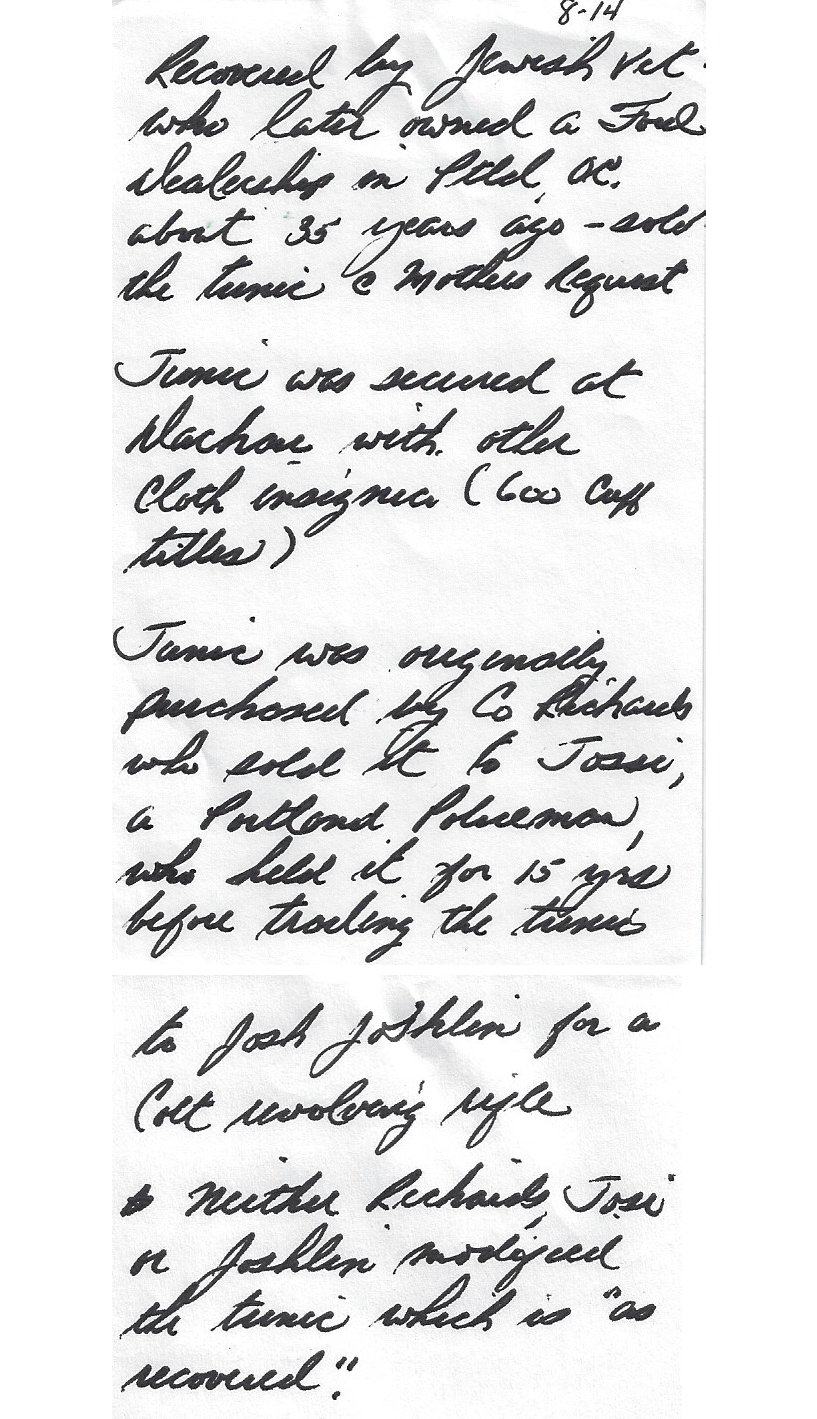 8-14
Recovered by Jewish Vet.
who later owned a Ford
Dealership in Ptld, OR.
about 35 years ago - sold
the tunic @ Mothers Request
Tunic was secured at
Dachau with other
Cloth insignia (600 Cuff
titles)
Tunic was originally
purchased by Co Richards
who sold it to Jossi,
a Portland Policeman,
who held it for 15 yrs
before trading the tunic
to Josh Joshlin for a
Colt revolving rifle
Neither Richards, Josi
or Joshlin modified
the tunic which is "as
recovered".